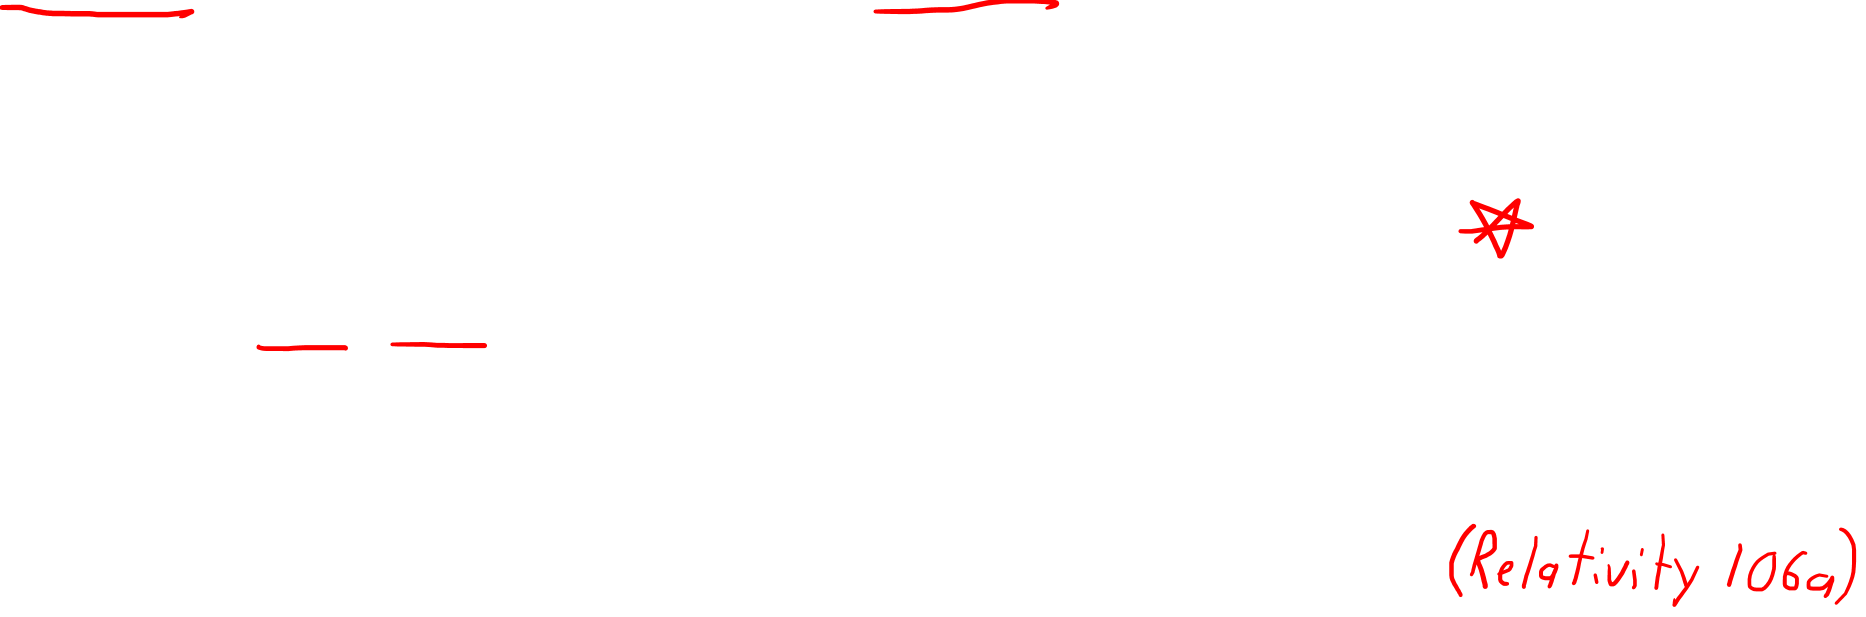 (Relativity 106a)